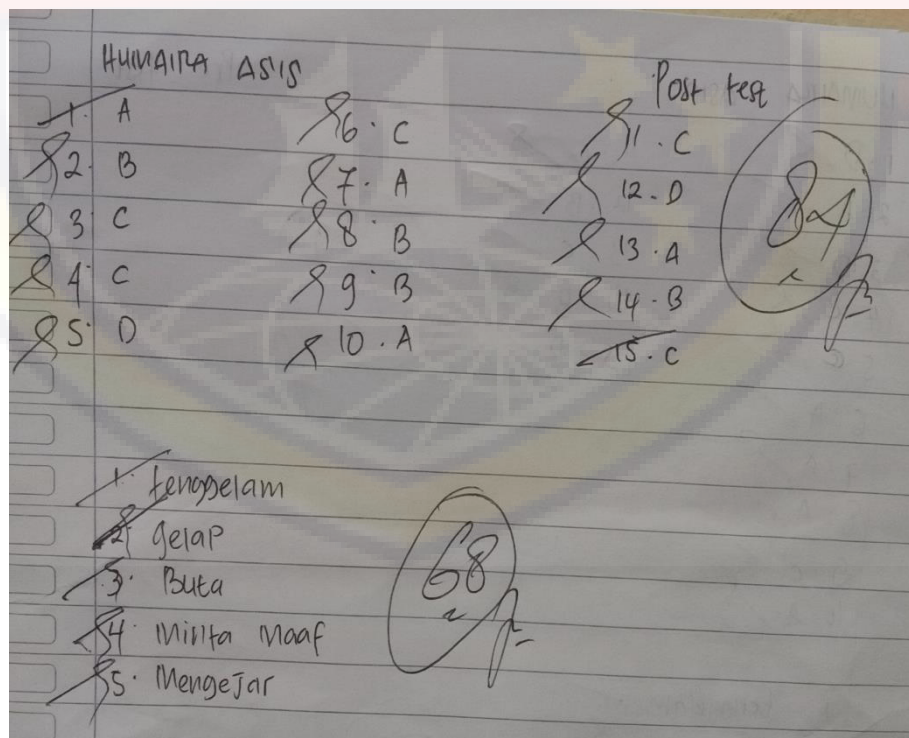 HUMAIRA ASIS
Post test
1. A
2. B
3. C
4. C
5. D
6. C
7. A
8. B
9. B
10. A
11. C
12. D
13. A
14. B
15. C
84
1. tenggelam
2. gelap
3. Buta
4. Minta Maaf
5. Mengejar
68